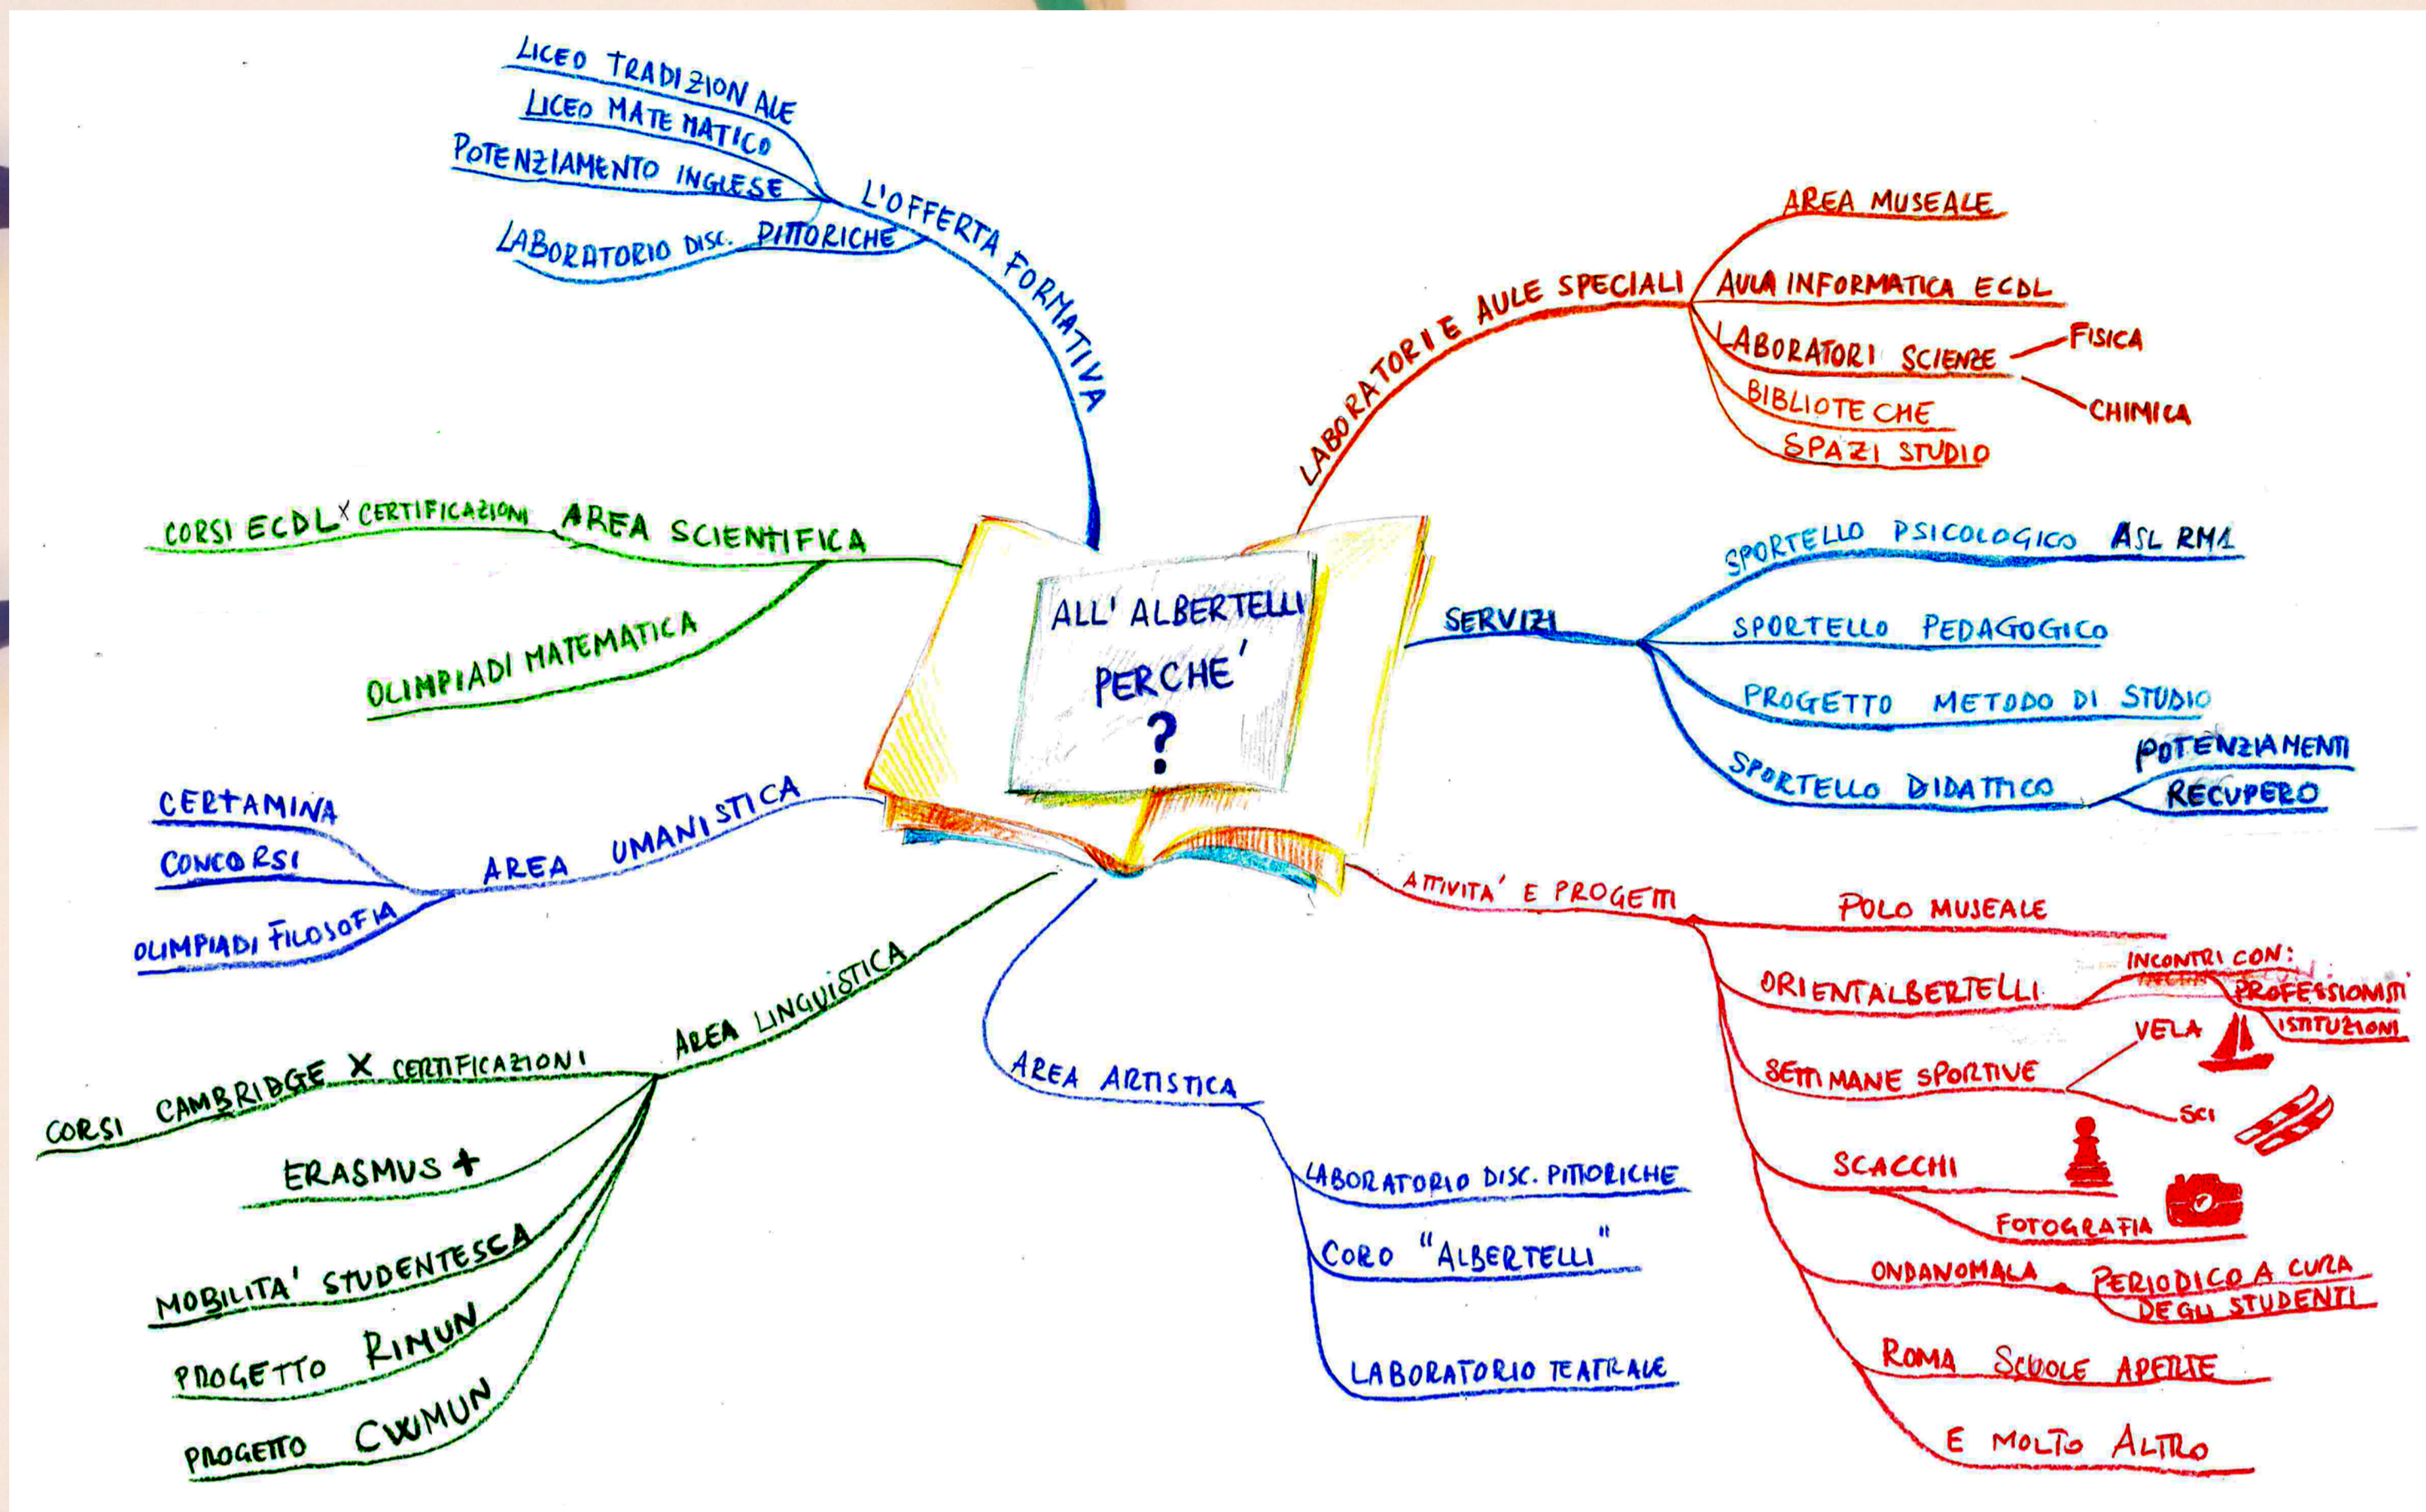 ALL' ALBERTELLI
PERCHE'
?
L'OFFERTA FORMATIVA
LICEO TRADIZIONALE
LICEO MATEMATICO
POTENZIAMENTO INGLESE
LABORATORIO DISC. PITTORICHE
LABORATORI E AULE SPECIALI
AREA MUSEALE
AULA INFORMATICA ECDL
LABORATORI SCIENZE
FISICA
CHIMICA
BIBLIOTECHE
SPAZI STUDIO
SERVIZI
SPORTELLO PSICOLOGICO ASL RM1
SPORTELLO PEDAGOGICO
PROGETTO METODO DI STUDIO
SPORTELLO DIDATTICO
POTENZIAMENTI
RECUPERO
ATTIVITA' E PROGETTI
POLO MUSEALE
ORIENTALBERTELLI
INCONTRI CON:
PROFESSIONISTI
ISTITUZIONI
SETTIMANE SPORTIVE
VELA
SCI
SCACCHI
FOTOGRAFIA
ONDANOMALA
PERIODICO A CURA
DEGLI STUDENTI
ROMA SCUOLE APERTE
E MOLTO ALTRO
AREA ARTISTICA
LABORATORIO DISC. PITTORICHE
CORO "ALBERTELLI"
LABORATORIO TEATRALE
AREA LINGUISTICA
CORSI CAMBRIDGE X CERTIFICAZIONI
ERASMUS +
MOBILITA' STUDENTESCA
PROGETTO RIMUN
PROGETTO CWMUN
AREA UMANISTICA
CERTAMINA
CONCORSI
OLIMPIADI FILOSOFIA
AREA SCIENTIFICA
CORSI ECDL X CERTIFICAZIONI
OLIMPIADI MATEMATICA